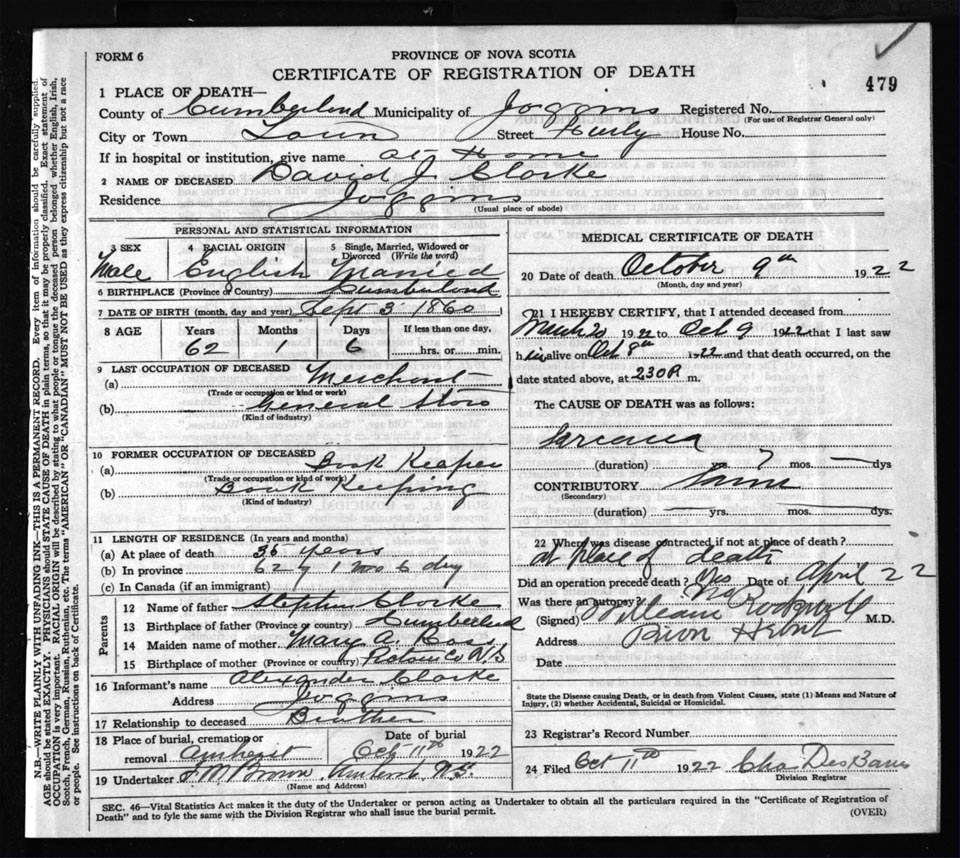 FORM 6
PROVINCE OF NOVA SCOTIA
CERTIFICATE OF REGISTRATION OF DEATH
479
1 PLACE OF DEATH—
County of Cumberland Municipality of Joggins Registered No.
(For use of Registrar General only)
City or Town Town Street Hurly House No.
If in hospital or institution, give name at Home
2 NAME OF DECEASED David J. Clarke
Residence Joggins
(Usual place of abode)
PERSONAL AND STATISTICAL INFORMATION
3 SEX 4 RACIAL ORIGIN 5 Single, Married, Widowed or Divorced (Write the word)
Male English Married
6 BIRTHPLACE (Province or Country) Cumberland
7 DATE OF BIRTH (month, day and year) Sept 3 1860
8 AGE Years Months Days If less than one day.
62 1 6 hrs. or min.
9 LAST OCCUPATION OF DECEASED
(a) Merchant
(Trade or occupation or kind of work)
(b) General Store
(Kind of industry)
10 FORMER OCCUPATION OF DECEASED
(a) Book Keeper
(Trade or occupation or kind of work)
(b) Book Keeping
(Kind of industry)
11 LENGTH OF RESIDENCE (In years and months)
(a) At place of death 36 years
(b) In province 62 y 1 mo 6 day
(c) In Canada (if an immigrant)
Parents
12 Name of father Stephen Clarke
13 Birthplace of father (Province or country) Cumberland
14 Maiden name of mother Mary A. Ross
15 Birthplace of mother (Province or country) Pictou Co N.S
16 Informant's name Alexander Clarke
Address Joggins
17 Relationship to deceased Brother
18 Place of burial, cremation or removal Amherst Date of burial Oct 11th 1922
19 Undertaker Brown, Amherst, N.S.
(Name and Address)
MEDICAL CERTIFICATE OF DEATH
20 Date of death October 9th 1922
(Month, day and year)
21 I HEREBY CERTIFY, that I attended deceased from
March 20 1922 to Oct 9 1922 that I last saw
him alive on Oct 8th 1922 and that death occurred, on the
date stated above, at 2 30 P. m.
The CAUSE OF DEATH was as follows:
Sarcoma
(duration) yrs. 7 mos. dys
CONTRIBUTORY Same
(Secondary)
(duration) yrs. mos. dys.
22 Where was disease contracted if not at place of death?
at place of death
Did an operation precede death? Yes Date of April 22
Was there an autopsy? No
(Signed) William Rockwell M.D.
Address River Hebert
Date
State the Disease causing Death, or in death from Violent Causes, state (1) Means and Nature of
Injury, (2) whether Accidental, Suicidal or Homicidal.
23 Registrar's Record Number
24 Filed Oct 11th 1922 Chas DesBarres
Division Registrar
SEC. 46—Vital Statistics Act makes it the duty of the Undertaker or person acting as Undertaker to obtain all the particulars required in the "Certificate of Registration of
Death" and to fyle the same with the Division Registrar who shall issue the burial permit.
(OVER)
N.B.—WRITE PLAINLY WITH UNFADING INK—THIS IS A PERMANENT RECORD. Every item of information should be carefully supplied.
AGE should be stated EXACTLY. PHYSICIANS should STATE CAUSE OF DEATH in plain terms, so that it may be properly classified. Exact statement of
OCCUPATION is very important. RACIAL ORIGIN will be described by stating to what people or tongue the deceased person belonged whether English, Irish,
Scotch, French, German, Russian, Ruthenian, etc. The terms "AMERICAN" OR "CANADIAN" MUST NOT BE USED as they express citizenship but not a race
or people. See instructions on back of Certificate.